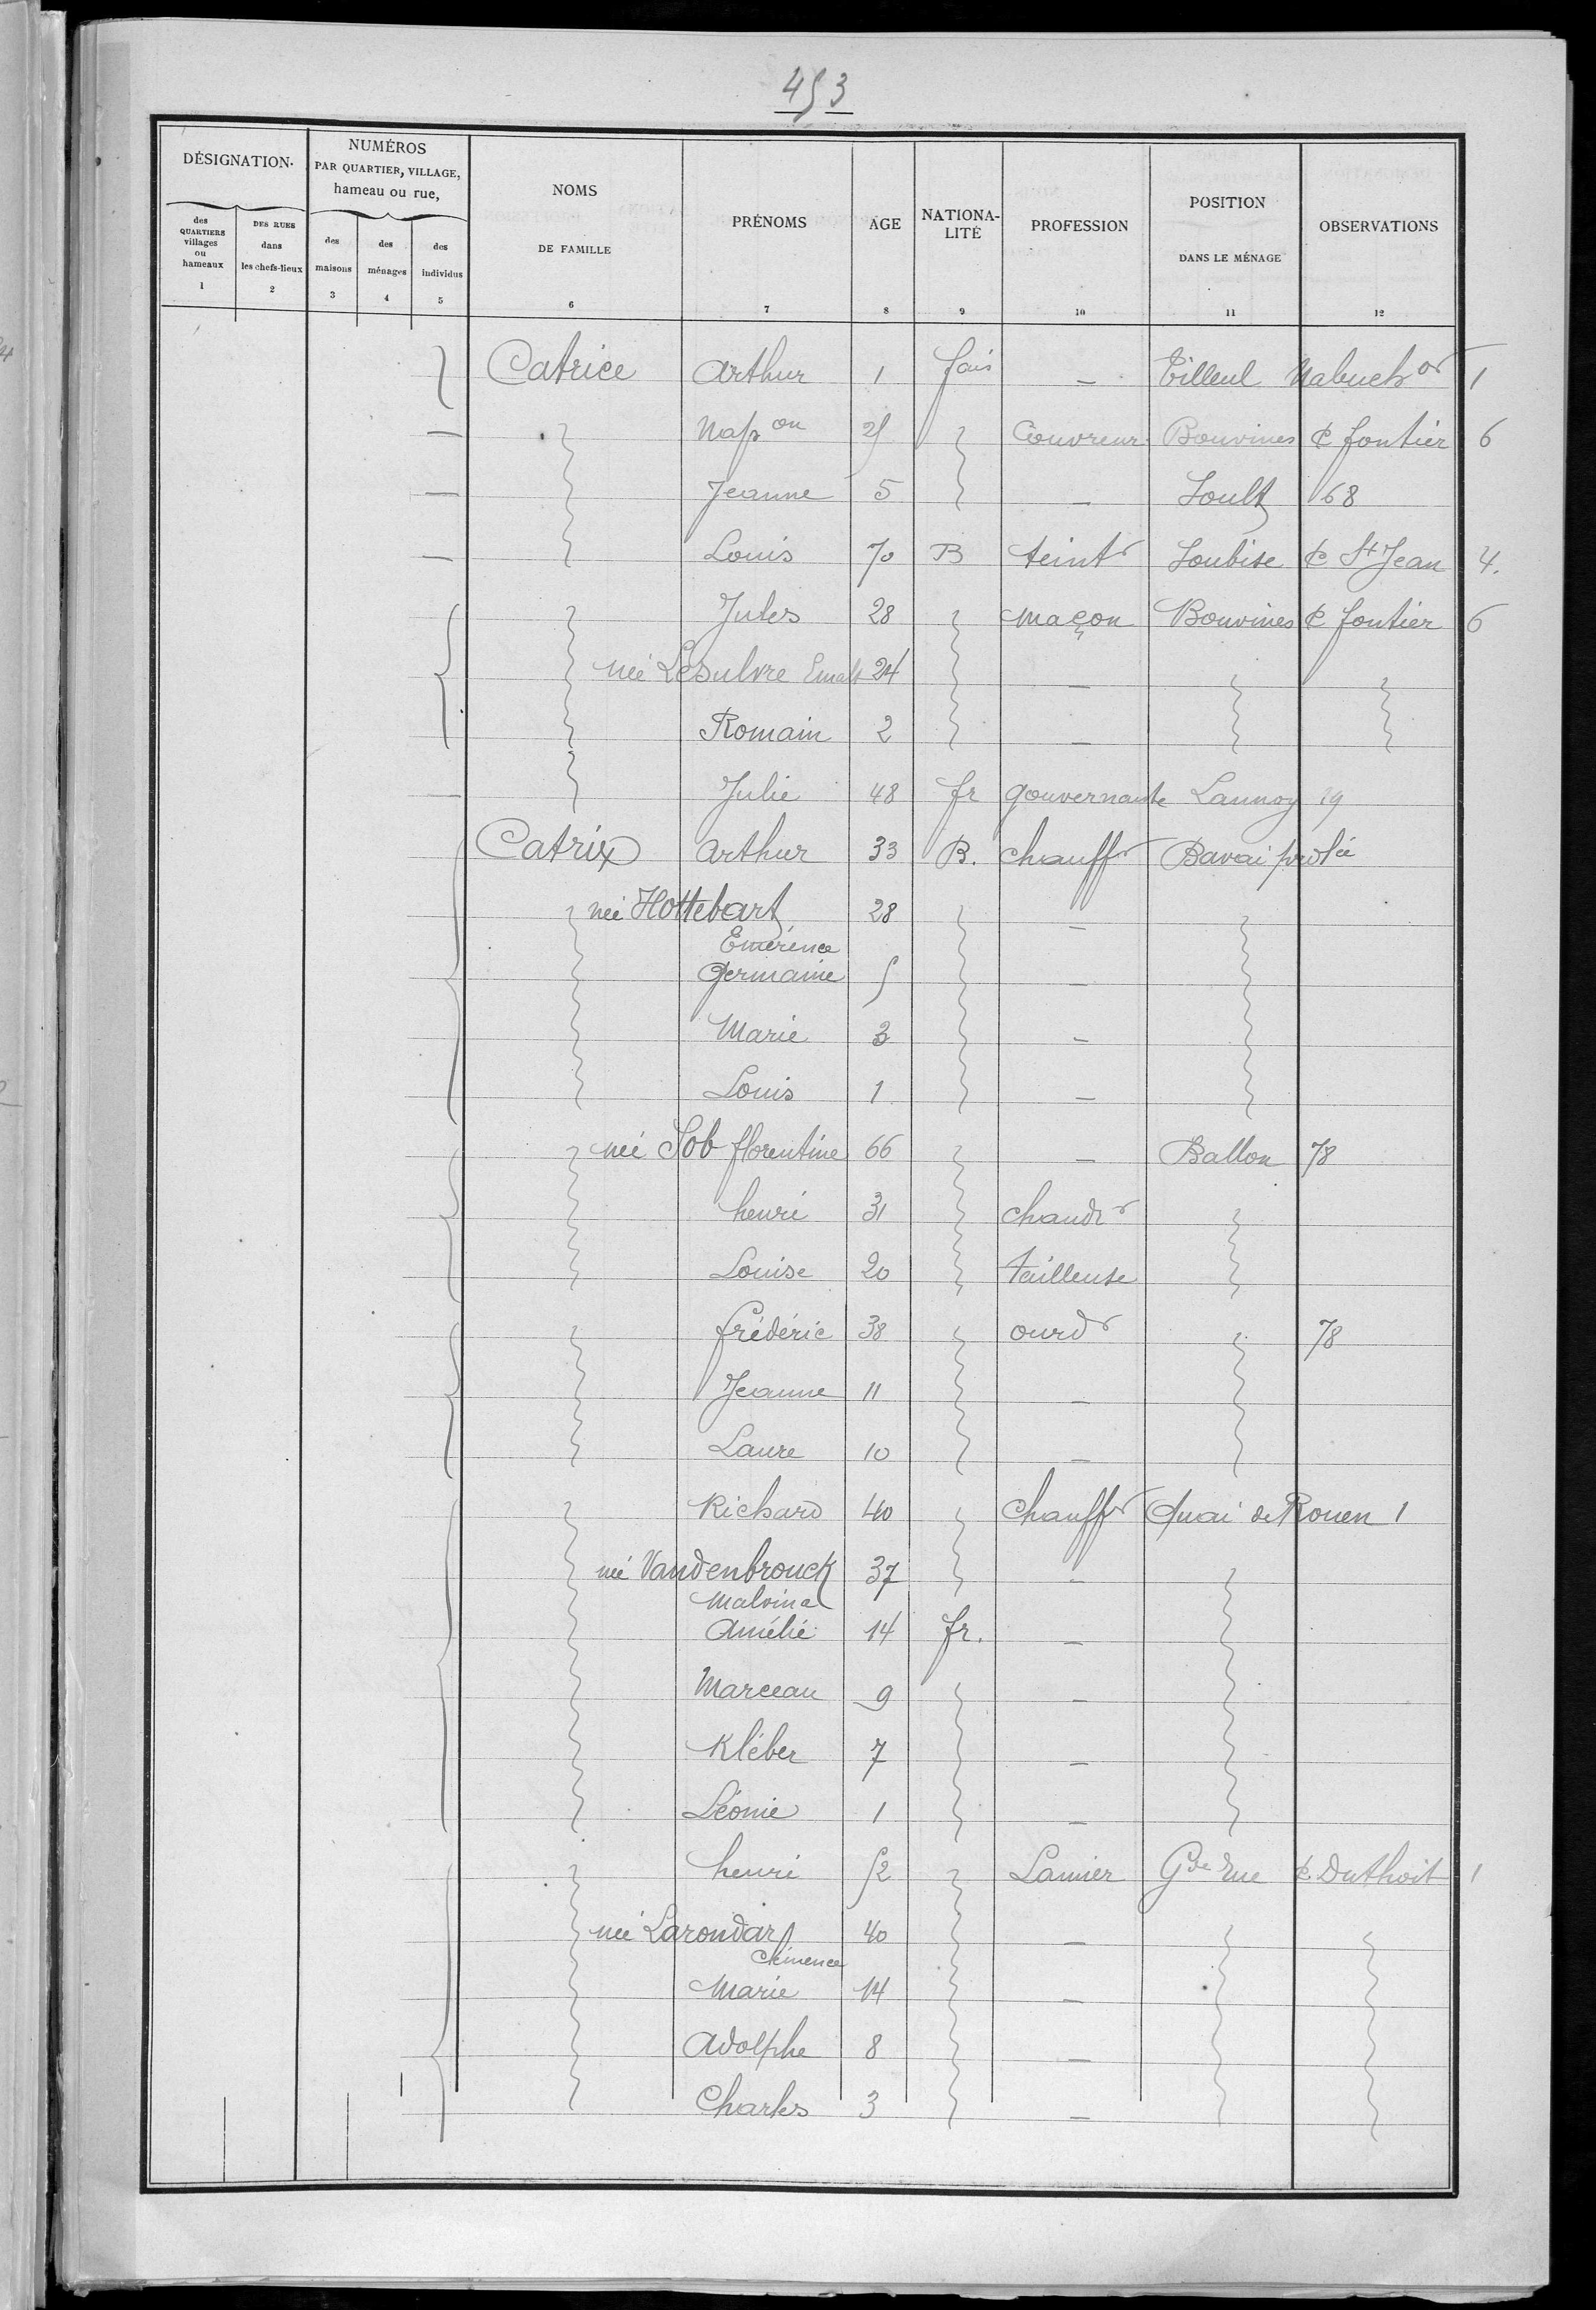 453
DÉSIGNATION
NUMÉROS PAR QUARTIER, VILLAGE, hameau ou rue,
des QUARTIERS villages ou hameaux 1
DES RUES dans les chefs-lieux 2
des maisons 3
des ménages 4
des individus 5
NOMS DE FAMILLE 6
PRÉNOMS 7
AGE 8
NATIONA-LITÉ 9
PROFESSION 10
POSITION DANS LE MÉNAGE 11
OBSERVATIONS 12
Catrice Arthur 1 fais — Tilleul Nabuchor 1
— Napon 25 Couvreur Bouvines C fontier 6
— Jeanne 5 — Soult 68
— Louis 70 B teintr Soubise C St Jean 4.
Jules 28 maçon Bouvines C fontier 6
née Lesulvre 24 —
Romain 2 —
— Julie 48 fr gouvernante Lannoy 29
Catrix Arthur 33 B. chauffr Bavai
née Hottebart 28 —
Emérence
Germaine 5 —
Marie 3 —
Louis 1 —
née Job florentine 66 — Ballon 78
henri 31 chaudr
Louise 20 tailleuse
frédéric 38 ourdr 78
Jeanne 11 —
Laure 10 —
Richard 40 Chauffr Quai de Rouen 1
née Vandenbrouck 37 —
Malvina
Amélie 14 fr. —
Marceau 9 —
Kléber 7 —
Léonie 1 —
henri 52 Lamier Gde rue C. Duthoit 1
née Larondar 40 —
Clémence
Marie 14 —
Adolphe 8 —
Charles 3 —